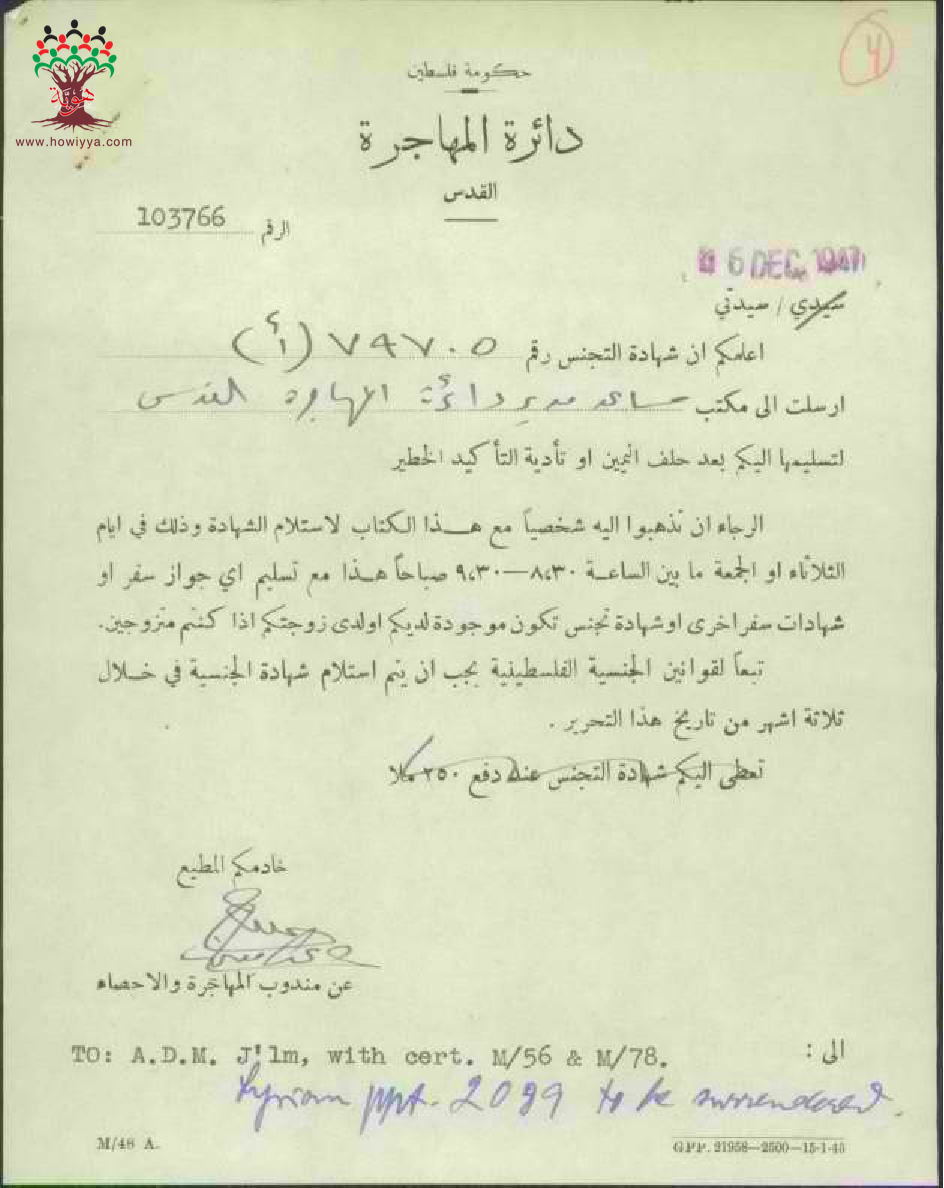 4
حكومة فلسطين
هوية
www.howiyya.com
دائرة المهاجرة
القدس
الرقم 103766
6 DEC 1947
سيدي / سيدتي
اعلمكم ان شهادة التجنس رقم ٧٩٧٠٥ (أ)
ارسلت الى مكتب مساعد مدير دائرة المهاجرة القدس
لتسليمها اليكم بعد حلف اليمين او تأدية التأكيد الخطير
الرجاء ان تذهبوا اليه شخصياً مع هذا الكتاب لاستلام الشهادة وذلك في ايام
الثلاثاء او الجمعة ما بين الساعة ٨،٣٠—٩،٣٠ صباحاً هذا مع تسليم اي جواز سفر او
شهادات سفر اخرى او شهادة تجنس تكون موجودة لديكم او لدى زوجتكم اذا كنتم متزوجين.
تبعاً لقوانين الجنسية الفلسطينية يجب ان يتم استلام شهادة الجنسية في خلال
ثلاثة اشهر من تاريخ هذا التحرير .
تعطى اليكم شهادة التجنس عند دفع ٢٥٠ ملا
خادمكم المطيع
عن مندوب المهاجرة والاحصاء
الى :
TO: A.D.M. J'lm, with cert. M/56 & M/78.
Syrian ppt. 2099 to be surrendered.
M/48 A.
GPP. 21958—2500—15-1-45